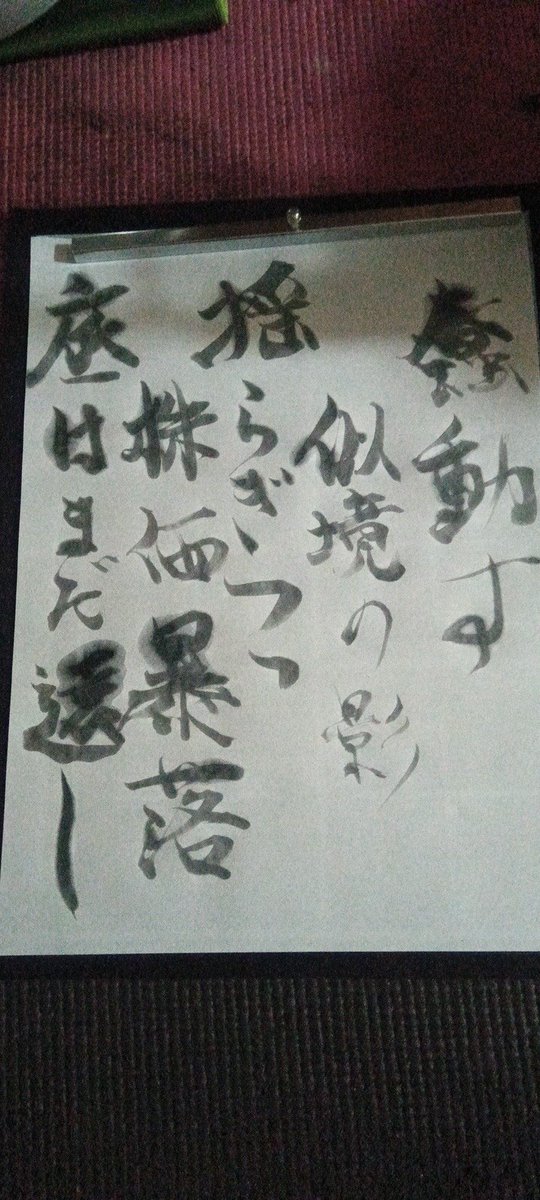 蠢動す
似境の影
揺らぎつつ
株価暴落
底はまだ遠し